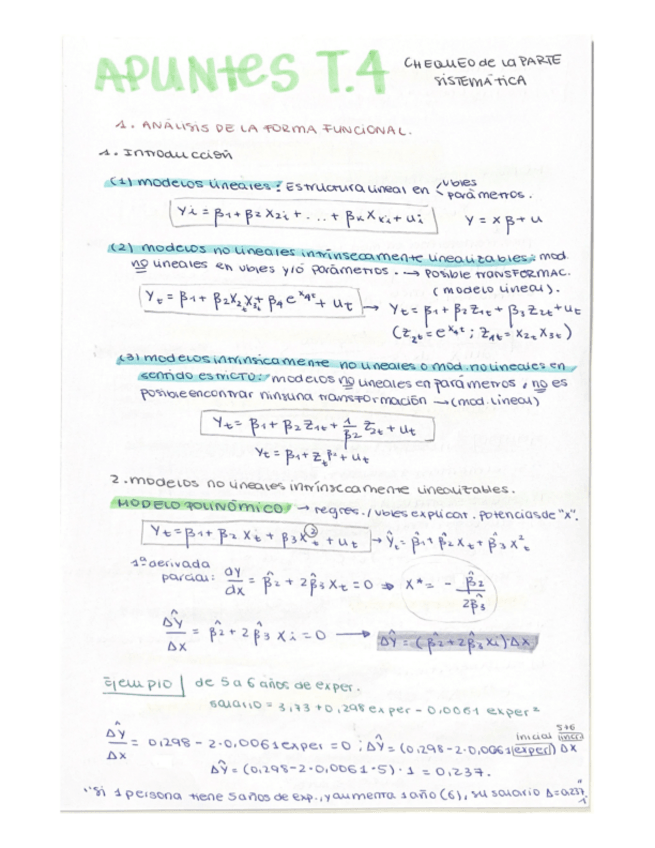 APUNTES T.4 CHEQUEO de LA PARTE
SISTEMÁTICA
1. ANÁLISIS DE LA FORMA FUNCIONAL.
1. Introducción
(1) modelos lineales: Estructura lineal en vbles
parámetros.
Yi = β1 + β2 X2i + ... + βk Xki + ui Y = Xβ + u
(2) modelos no lineales intrínsecamente linealizables: mod.
no lineales en vbles y/o parámetros. → Posible TRANSFORMAC.
(modelo lineal).
Yt = β1 + β2 X2t X3t + β4 e^X4t + ut → Yt = β1 + β2 Z1t + β3 Z2t + ut
(Z2t = e^X4t ; Z1t = X2t X3t)
(3) modelos intrínsicamente no lineales o mod. no lineales en
sentido estricto: modelos no lineales en parámetros, no es
posible encontrar ninguna transformación → (mod. lineal)
Yt = β1 + β2 Z1t + 1/β2 Z2t + ut
Yt = β1 + Zt^β2 + ut
2. modelos no lineales intrínsecamente linealizables.
MODELO POLINÓMICO → regres. / vbles explicat. potencias de "x".
Yt = β1 + β2 Xt + β3 Xt² + ut → Ŷt = β̂1 + β̂2 Xt + β̂3 Xt²
1ª derivada
parcial: dy/dx = β̂2 + 2β̂3 Xt = 0 ⇒ X* = - β̂2/2β̂3
ΔŶ/ΔX = β̂2 + 2β̂3 Xi = 0 → ΔŶ = (β̂2 + 2β̂3 Xi) ΔX
Ejemplo de 5 a 6 años de exper.
salario = 3,73 + 0,298 exper - 0,0061 exper²
5→6
inicial incr.
ΔŶ/ΔX = 0,298 - 2·0,0061 exper = 0 ; ΔŶ = (0,298 - 2·0,0061 exper) ΔX
ΔŶ = (0,298 - 2·0,0061·5)·1 = 0,237.
"Si 1 persona tiene 5 años de exp., y aumenta 1 año (6), su salario Δ = 0,237"